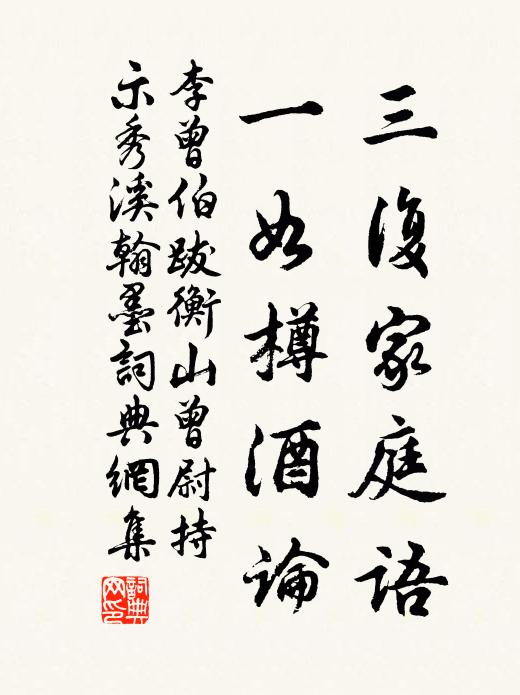 三復家庭語
一如樽酒論
李曾伯跋衡山曾尉持
示秀溪翰墨詞典網集
詞典網印